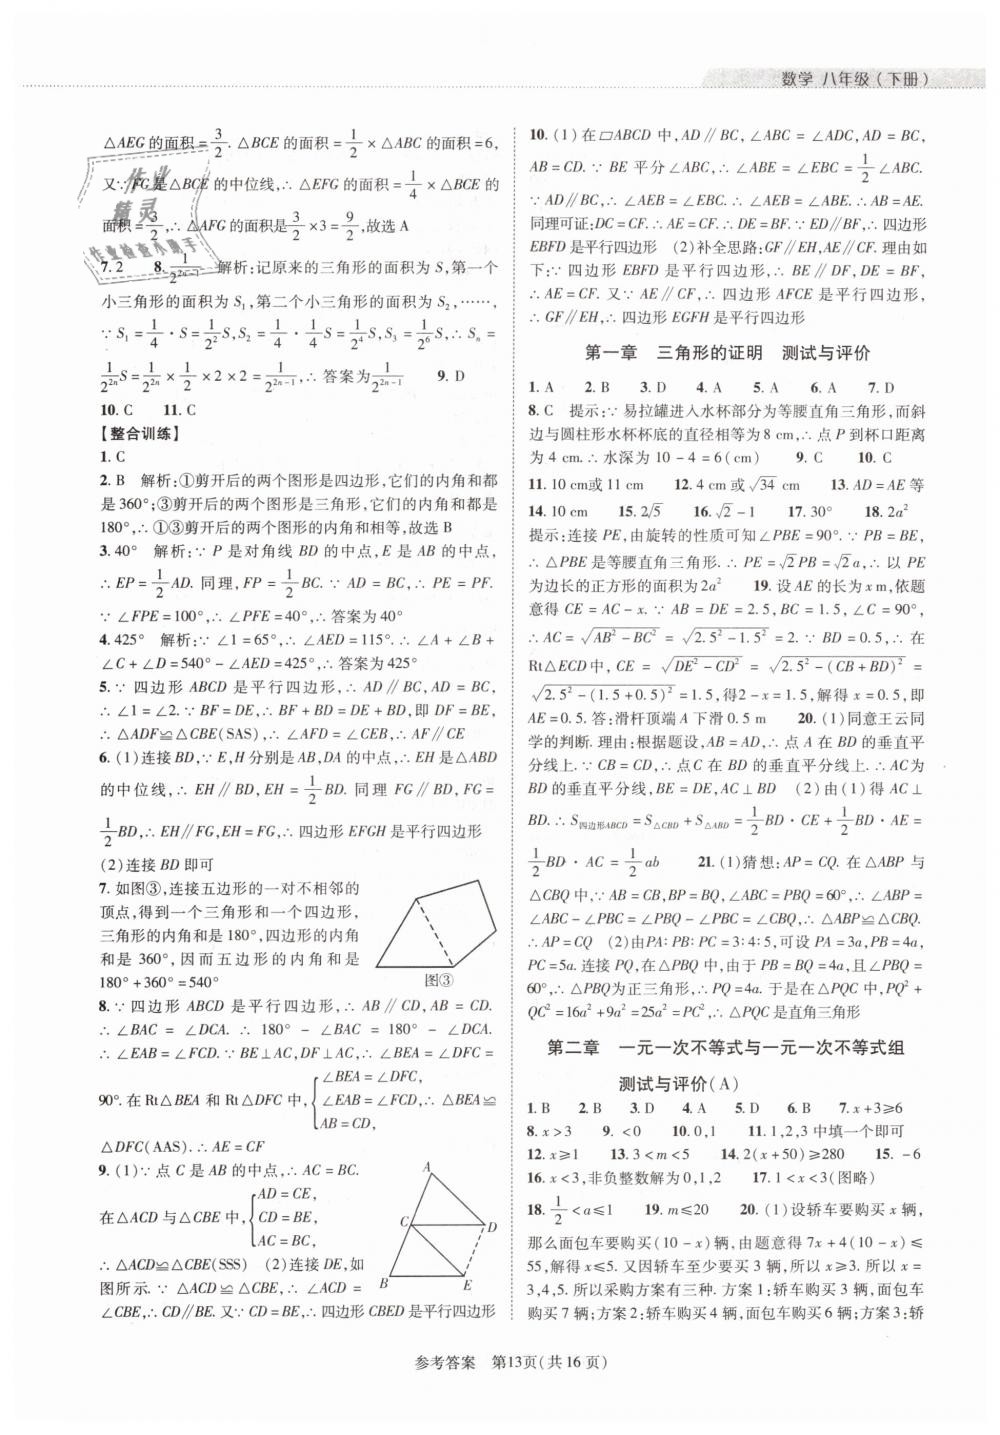 数学 八年级(下册)
△AEG的面积=3/2. △BCE的面积=1/2×△ABC的面积=6,
又∵FG是△BCE的中位线,∴△EFG的面积=1/4×△BCE的
面积=3/2,∴△AFG的面积是3/2×3=9/2,故选A
7. 2 8. 1/2²ⁿ⁻¹ 解析:记原来的三角形的面积为S,第一个
小三角形的面积为S₁,第二个小三角形的面积为S₂,……,
∵S₁=1/4·S=1/2²S,S₂=1/4·1/4S=1/2⁴S,S₃=1/2⁶S,∴Sₙ=
1/2²ⁿS=1/2²ⁿ×1/2×2×2=1/2²ⁿ⁻¹,∴答案为1/2²ⁿ⁻¹ 9. D
10. C 11. C
【整合训练】
1. C
2. B 解析:①剪开后的两个图形是四边形,它们的内角和都
是360°;③剪开后的两个图形是三角形,它们的内角和都是
180°,∴①③剪开后的两个图形的内角和相等,故选B
3. 40° 解析:∵P是对角线BD的中点,E是AB的中点,
∴EP=1/2AD. 同理,FP=1/2BC. ∵AD=BC,∴PE=PF.
∵∠FPE=100°,∴∠PFE=40°,∴答案为40°
4. 425° 解析:∵∠1=65°,∴∠AED=115°. ∴∠A+∠B+
∠C+∠D=540°-∠AED=425°,∴答案为425°
5. ∵四边形ABCD是平行四边形,∴AD∥BC,AD=BC,
∴∠1=∠2. ∵BF=DE,∴BF+BD=DE+BD,即DF=BE,
∴△ADF≌△CBE(SAS),∴∠AFD=∠CEB,∴AF∥CE
6. (1)连接BD,∵E,H分别是AB,DA的中点,∴EH是△ABD
的中位线,∴EH∥BD,EH=1/2BD. 同理FG∥BD,FG=
1/2BD,∴EH∥FG,EH=FG,∴四边形EFGH是平行四边形
(2)连接BD即可
7. 如图③,连接五边形的一对不相邻的
顶点,得到一个三角形和一个四边形,
三角形的内角和是180°,四边形的内角
和是360°,因而五边形的内角和是
180°+360°=540°
图③
8. ∵四边形ABCD是平行四边形,∴AB∥CD,AB=CD.
∴∠BAC=∠DCA. ∴180°-∠BAC=180°-∠DCA.
∴∠EAB=∠FCD. ∵BE⊥AC,DF⊥AC,∴∠BEA=∠DFC=
90°. 在Rt△BEA和Rt△DFC中,{∠BEA=∠DFC,
∠EAB=∠FCD,∴△BEA≌
AB=CD,
△DFC(AAS). ∴AE=CF
9. (1)∵点C是AB的中点,∴AC=BC.
在△ACD与△CBE中,{AD=CE,
CD=BE,
AC=BC,
∴△ACD≌△CBE(SSS) (2)连接DE,如
图所示. ∵△ACD≌△CBE,∴∠ACD=
∠CBE,∴CD∥BE. 又∵CD=BE,∴四边形CBED是平行四边形
A
C
D
B
E
10. (1)在▱ABCD中,AD∥BC,∠ABC=∠ADC,AD=BC,
AB=CD. ∵BE平分∠ABC,∴∠ABE=∠EBC=1/2∠ABC.
∵AD∥BC,∴∠AEB=∠EBC. ∴∠AEB=∠ABE. ∴AB=AE.
同理可证:DC=CF. ∴AE=CF. ∴DE=BF. ∵ED∥BF,∴四边形
EBFD是平行四边形 (2)补全思路:GF∥EH,AE∥CF. 理由如
下:∵四边形EBFD是平行四边形,∴BE∥DF,DE=BF,
∴AE=CF. 又∵AE∥CF,∴四边形AFCE是平行四边形,
∴GF∥EH,∴四边形EGFH是平行四边形
第一章 三角形的证明 测试与评价
1. A 2. B 3. D 4. A 5. A 6. A 7. D
8. C 提示:∵易拉罐进入水杯部分为等腰直角三角形,而斜
边与圆柱形水杯杯底的直径相等为8 cm,∴点P到杯口距离
为4 cm. ∴水深为10-4=6(cm) 9. C 10. C
11. 10 cm或11 cm 12. 4 cm或√34 cm 13. AD=AE等
14. 10 cm 15. 2√5 16. √2-1 17. 30° 18. 2a²
提示:连接PE,由旋转的性质可知∠PBE=90°. ∵PB=BE,
∴△PBE是等腰直角三角形. ∴PE=√2PB=√2a,∴以PE
为边长的正方形的面积为2a² 19. 设AE的长为x m,依题
意得CE=AC-x. ∵AB=DE=2.5,BC=1.5,∠C=90°,
∴AC=√(AB²-BC²)=√(2.5²-1.5²)=2. ∵BD=0.5,∴在
Rt△ECD中,CE=√(DE²-CD²)=√(2.5²-(CB+BD)²)=
√(2.5²-(1.5+0.5)²)=1.5,得2-x=1.5,解得x=0.5,即
AE=0.5. 答:滑杆顶端A下滑0.5 m 20. (1)同意王云同
学的判断. 理由:根据题设,AB=AD,∴点A在BD的垂直平
分线上. ∵CB=CD,∴点C在BD的垂直平分线上. ∴AC为
BD的垂直平分线,BE=DE,AC⊥BD (2)由(1)得AC⊥
BD. ∴S四边形ABCD=S△CBD+S△ABD=1/2BD·CE+1/2BD·AE=
1/2BD·AC=1/2ab 21. (1)猜想:AP=CQ. 在△ABP与
△CBQ中,∵AB=CB,BP=BQ,∠ABC=∠PBQ=60°,∴∠ABP=
∠ABC-∠PBC=∠PBQ-∠PBC=∠CBQ,∴△ABP≌△CBQ.
∴AP=CQ (2)由PA∶PB∶PC=3∶4∶5,可设PA=3a,PB=4a,
PC=5a. 连接PQ,在△PBQ中,由于PB=BQ=4a,且∠PBQ=
60°,∴△PBQ为正三角形,∴PQ=4a. 于是在△PQC中,PQ²+
QC²=16a²+9a²=25a²=PC²,∴△PQC是直角三角形
第二章 一元一次不等式与一元一次不等式组
测试与评价(A)
1. B 2. B 3. D 4. A 5. D 6. B 7. x+3≥6
8. x>3 9. <0 10. 0,1 11. 1,2,3中填一个即可
12. x≥1 13. 3<m<5 14. 2(x+50)≥280 15. -6
16. x<3,非负整数解为0,1,2 17. 1<x<3(图略)
18. 1/2<a≤1 19. m≤20 20. (1)设轿车要购买x辆,
那么面包车要购买(10-x)辆,由题意得7x+4(10-x)≤
55,解得x≤5. 又因轿车至少要买3辆,所以x≥3. 所以x=
3,4,5. 所以采购方案有三种. 方案1:轿车购买3辆,面包车
购买7辆;方案2:轿车购买4辆,面包车购买6辆;方案3:轿
参考答案 第13页(共16页)
作业
精灵
作业检查小助手